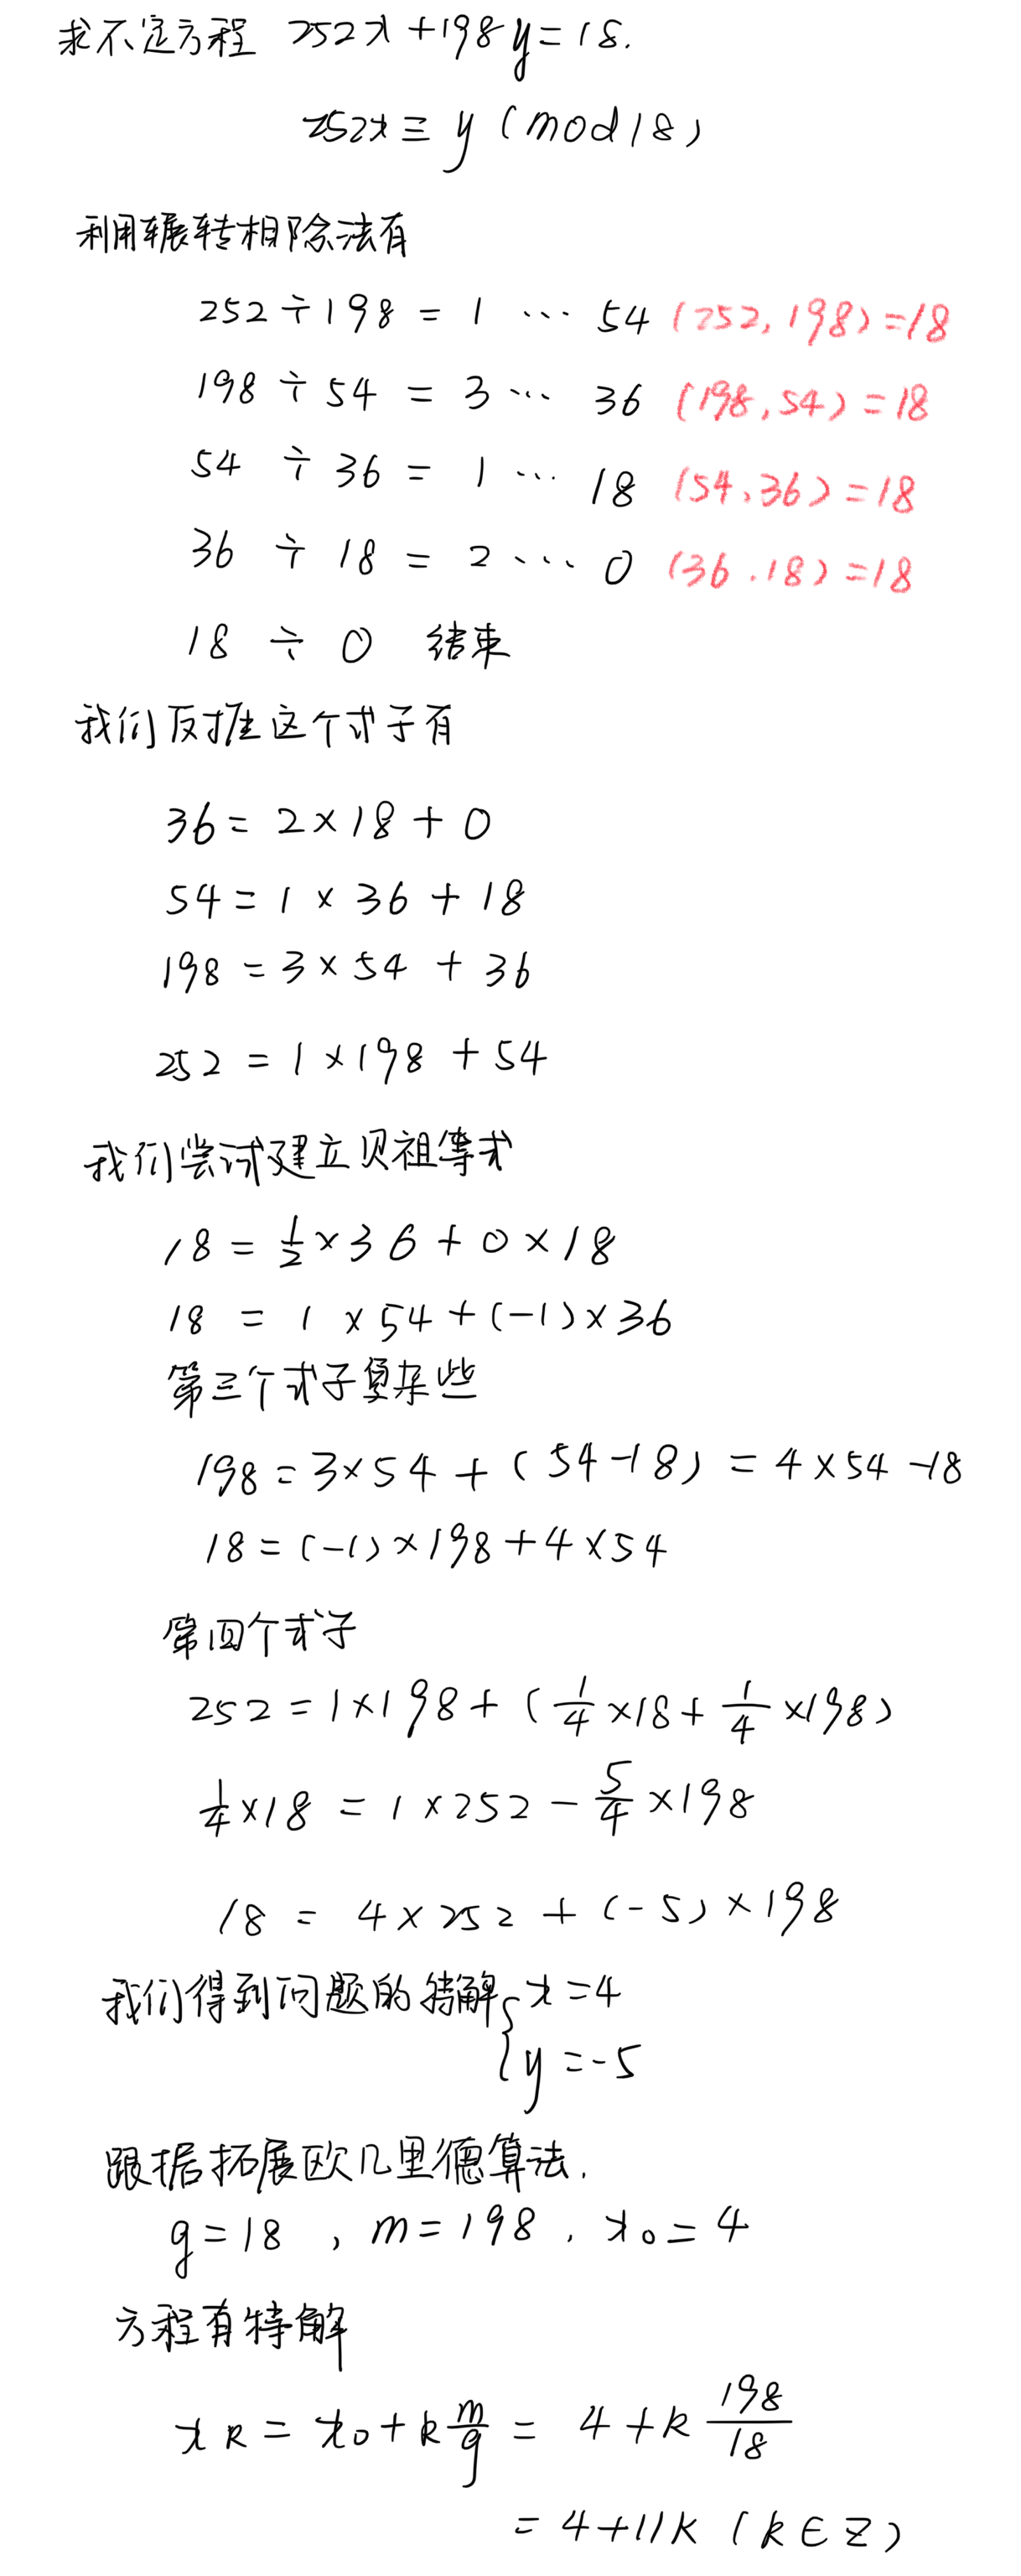 求不定方程 252x+198y=18.
252x≡y(mod18)
利用辗转相除法有
252÷198=1…54 (252,198)=18
198÷54=3…36 (198,54)=18
54÷36=1…18 (54,36)=18
36÷18=2…0 (36.18)=18
18÷0 结束
我们反推这个式子有
36=2×18+0
54=1×36+18
198=3×54+36
252=1×198+54
我们尝试建立贝祖等式
18=1/2×36+0×18
18=1×54+(-1)×36
第三个式子复杂些
198=3×54+(54-18)=4×54-18
18=(-1)×198+4×54
第四个式子
252=1×198+(1/4×18+1/4×198)
1/4×18=1×252-5/4×198
18=4×252+(-5)×198
我们得到问题的特解{x=4
y=-5
跟据拓展欧几里德算法.
g=18,m=198.x₀=4
方程有特解
xₖ=x₀+k m/g=4+k 198/18
=4+11k(k∈Z)